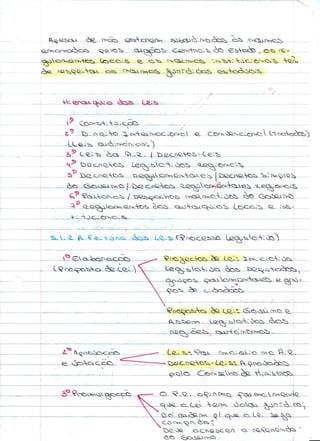 Apesar de não estarem subordinados às normas
emanadas pelos órgãos centrais do Estado, os re-
gulamentos locais e as normas institucionais têm
de respeitar as normas jurídicas estaduais.
Hierarquia das Leis
1º Constituição
2º Direito Internacional e Convencional (Tratados)
(Leis ordinárias)
3º Leis da A.R. / Decretos-Leis
4º Decretos Legislativos Regionais
5º Decretos Regulamentares / Decretos Simples
do Governo / Decretos Regulamentares Regionais
6º Portarias / Despachos normativos do Governo
7º Regulamentos das autarquias locais e ins-
titucionais.
5.1.2. A Feitura das Leis (Processo Legislativo)
1º Elaboração
(Proposta de Lei)
Projectos de Lei: Iniciativa
Legislativa dos Deputados,
grupos parlamentares e gru-
pos de cidadãos
Proposta de Lei: Governo e
Assem. Legislativa das
regiões autónomas
2º Aprovação
e votação
Leis: Por maioria na A.R.
Decretos-Leis: Aprovados
pelo Conselho de Ministros
3º Promulgação
O P.R. afirma formalmente
que a Lei tem valor jurídico;
Dá ordem p/ que a Lei seja
cumprida;
Deve acrescer a referenda
do Governo.